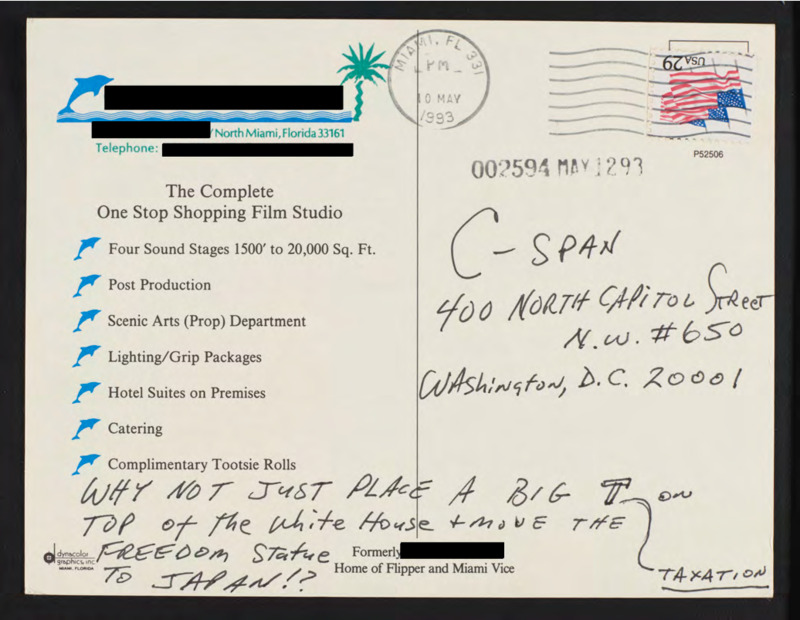 North Miami, Florida 33161
Telephone:
The Complete
One Stop Shopping Film Studio
Four Sound Stages 1500' to 20,000 Sq. Ft.
Post Production
Scenic Arts (Prop) Department
Lighting/Grip Packages
Hotel Suites on Premises
Catering
Complimentary Tootsie Rolls
MIAMI, FL 331
PM
10 MAY
1993
USA 29
P52506
002594 MAY 1293
C-SPAN
400 NORTH CAPITOL Street
N.W. #650
WAshington, D.C. 20001
WHY NOT JUST PLACE A BIG T ON
TOP of the White House + MOVE THE
FREEDOM Statue
TO JAPAN!?
TAXATION
dynacolor
graphics, inc
MIAMI, FLORIDA
Formerly
Home of Flipper and Miami Vice